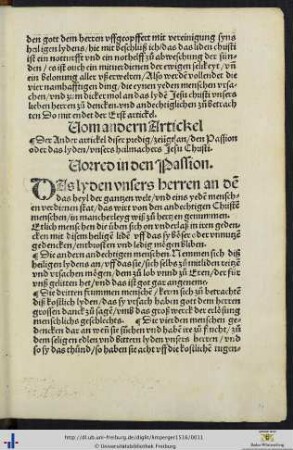 den gott dem herren vffgeopffert mit vereinigung syns
heiligen lydens / hie mit beschlüß ich / das das liden christi
ist ein notturfft vnd ein nothelff zů abweschung der sün
den / es ist ouch ein mitverdienen der ewigen selikeyt / vñ
ein belonung aller vßerwelten / Also werdē vollendet die
vier namhafftigen ding / die eynen yeden menschen vrsa-
chen / vnd zum dickermol an das lydē Jesu christi vnsers
lieben herren zů dencken / vnd andechtiglichen zů betrach
ten Do mit endet der Erst artickel.
Vom andern Artickel
¶ Der Ander artickel diser predig / zeigt an / den Passion
oder das lyden / vnsers heilmachers Jesu Christi.
Vorred in den Passion.
DAs lyden vnsers herren an dē
das heyl der gantzen welt / vnd eins yedē mensch-
en verdienen stat / das wirt von den andechtigen Christē
menschen / in mancherley wyß zů hertzen genummen.
Etlich menschen die üben sich vnderlaß in iren geden-
cken mit disem heiligē lidē vff das sy böser oder vnnützē
gedencken / entrusten vnd ledig mögen bliben.
¶ Die andern andechtigen menschen Nemmen sich diß
heiligen lydens an / vff das sie / sich selbs zů mitliden reitzē
vnd vrsachen mögen / dem zů lob vnnd zů Eren / der für
vnß gelitten het / vnd das ist got gar angeneme.
¶ Die dritten frummen mensche kern sich zů betrachtē
diß kostlich lyden / das sy vrsach habin gott dem herren
grosser danck zů sagē / vmb das groß werck der erlösung
menschlichs geschlechts. ¶ Die vierden menschen ge-
dencken dar an wen sie süchen vnd habē ire zů flucht / zů
dem seligen edlen vnd bittern lyden vnsers herren / vnd
so sy das thůnd / so haben sie acht vff die kostlichē tugen-
http://dl.ub.uni-freiburg.de/diglit/keisersperg1516/0011
© Universitätsbibliothek Freiburg
Baden-Württemberg